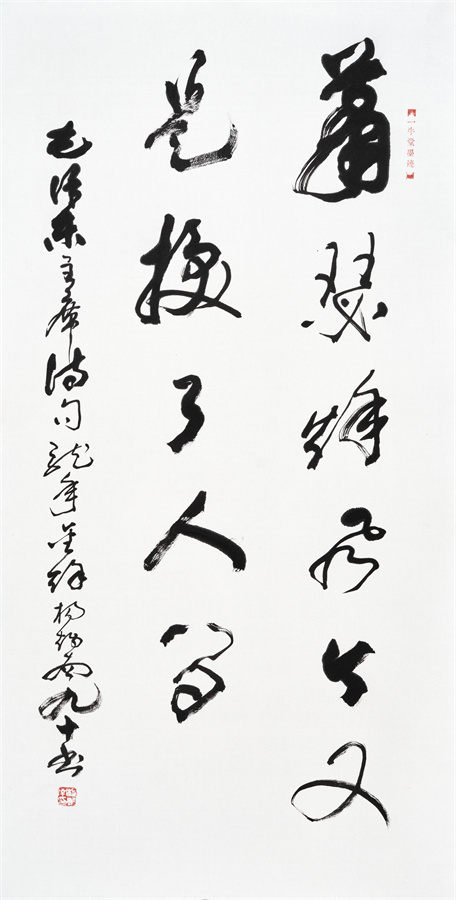 蕭瑟秋風今又
是換了人間
毛澤東主席詩句龍年金秋楊九十書